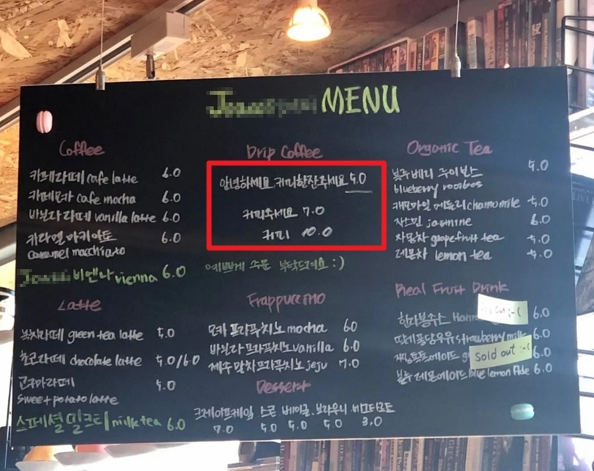 MENU
Coffee
카페라떼 cafe latte 6.0
카페모카 cafe mocha 6.0
바닐라 라떼 vanilla latte 6.0
카라멜 마키아또 6.0
caramel macchiato
비엔나 vienna 6.0
Latte
녹차라떼 green tea latte 5.0
초코라떼 chocolate latte 5.0/6.0
고구마라떼 5.0
sweet potato latte
스페셜 밀크티 milk tea 6.0
Drip Coffee
안녕하세요 커피한잔주세요 5.0
커피주세요 7.0
커피 10.0
예쁘게 주문 부탁드려요 :)
Frappuccino
모카 프라푸치노 mocha 6.0
바닐라 프라푸치노 vanilla 6.0
제주 말차 프라푸치노 jeju 7.0
Dessert
크레이프케잌 스콘 베이글 브라우니
7.0 5.0 5.0 5.0 3.0
Organic Tea
블루베리 루이보스 5.0
blueberry rooibos
캐모마일 chamomile 5.0
자스민 jasmine 6.0
자몽차 grapefruit tea 5.0
레몬차 lemon tea 5.0
Real Fruit Drink
한라봉주스
딸기 strawberry milk
Sold out :-(
블루 레몬에이드 blue lemon Ade 6.0